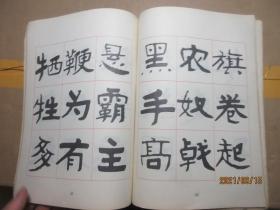 旗卷起
农奴戟
黑手高
悬霸主
鞭为有
牺牲多